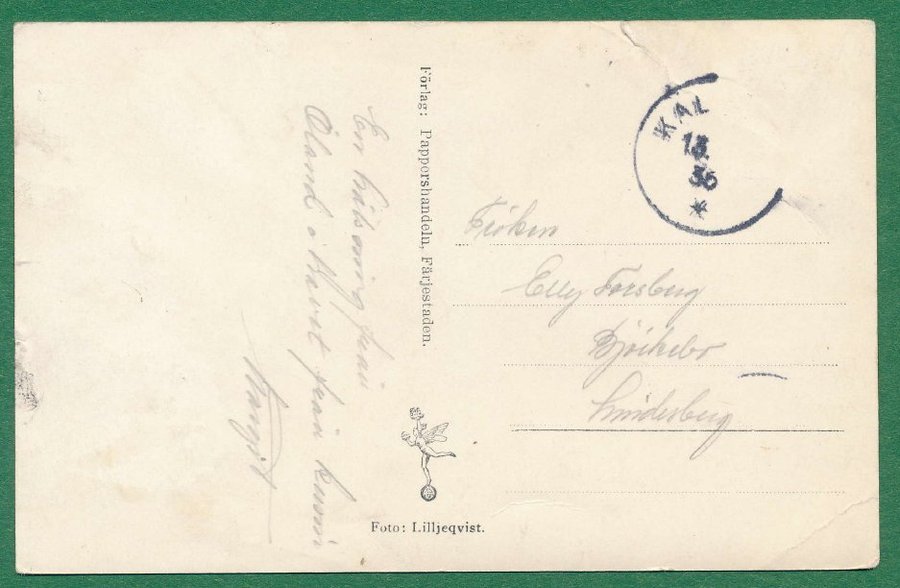 En hälsning från
Öland o Havet från kusin
Margit
Förlag: Pappershandeln, Färjestaden.
Foto: Lilljeqvist.
KAL
13
36
Fröken
Elly Forsberg
Björkebo
Lindesberg